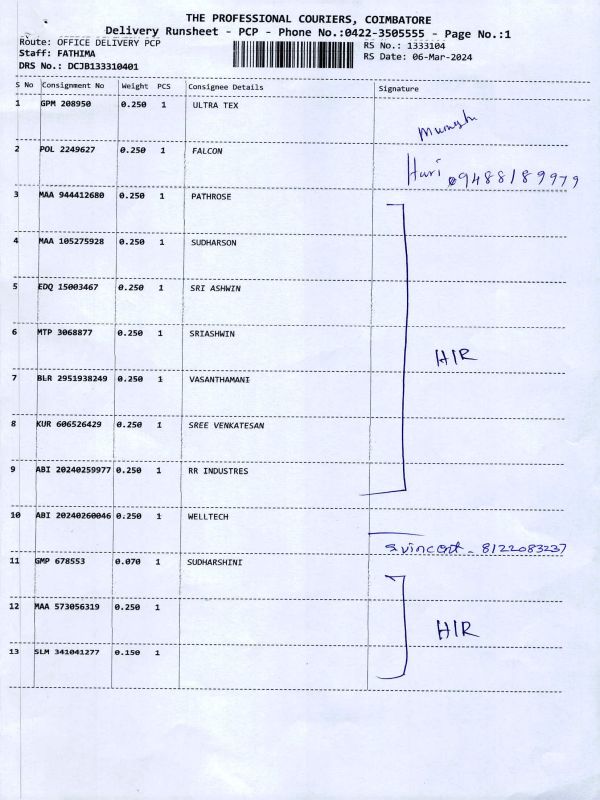 THE PROFESSIONAL COURIERS, COIMBATORE
Delivery Runsheet - PCP - Phone No.:0422-3505555 - Page No.:1
Route: OFFICE DELIVERY PCP
RS No.: 1333104
Staff: FATHIMA
RS Date: 06-Mar-2024
DRS No.: DCJB133310401
S No Consignment No Weight PCS Consignee Details Signature
1 GPM 208950 0.250 1 ULTRA TEX
2 POL 2249627 0.250 1 FALCON Hari 09488189979
3 MAA 944412680 0.250 1 PATHROSE
4 MAA 105275928 0.250 1 SUDHARSON
5 EDQ 15003467 0.250 1 SRI ASHWIN
6 MTP 3068877 0.250 1 SRIASHWIN
HIR
7 BLR 2951938249 0.250 1 VASANTHAMANI
8 KUR 606526429 0.250 1 SREE VENKATESAN
9 ABI 20240259977 0.250 1 RR INDUSTRES
10 ABI 20240260046 0.250 1 WELLTECH
S vincent - 8122083237
11 GMP 678553 0.070 1 SUDHARSHINI
12 MAA 573056319 0.250 1
HIR
13 SLM 341041277 0.150 1